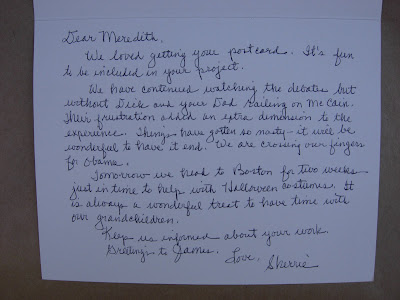 Dear Meredith,
We loved getting your postcard. It's fun
to be included in your project.
We have continued watching the debates but
without Dick and your Dad railing on McCain.
Their frustration added an extra dimension to the
experience. Things have gotten so nasty - it will be
wonderful to have it end. We are crossing our fingers
for Obama.
Tomorrow we head to Boston for two weeks
just in time to help with Halloween costumes. It
is always a wonderful treat to have time with
our grandchildren.
Keep us informed about your work.
Greetings to James.
Love,
Sherrie